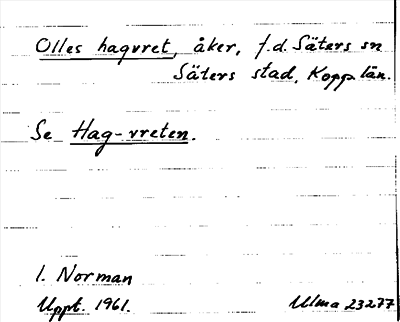 Olles hagvret, åker, f.d. Säters sn
Säters stad, Kopp. län.
Se Hag-vreten.
I. Norman
Uppt. 1961.
Ulma 23277